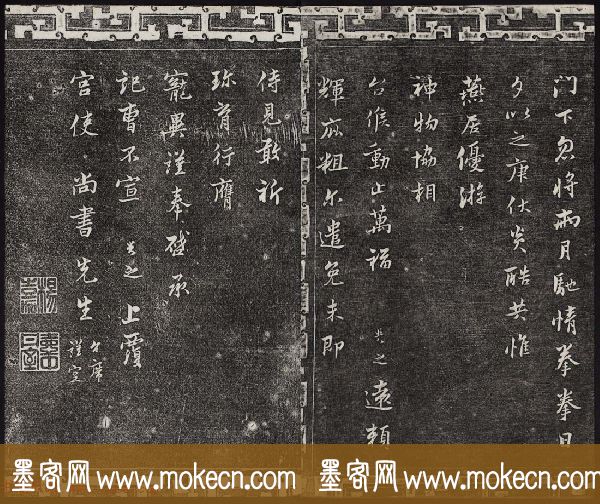 門下忽將兩月馳情拳拳日
夕以之庚伏炎酷共惟
燕居優游
神物協相
台候動止萬福 之遠賴
輝庇粗爾遣免未即
侍見敢祈
珍育行膺
寵異謹奉啟承
記曹不宣 之上覆
宫使尚書先生 台席
謹空
墨客网 www.mokecn.com
墨客网 www.mokecn.com